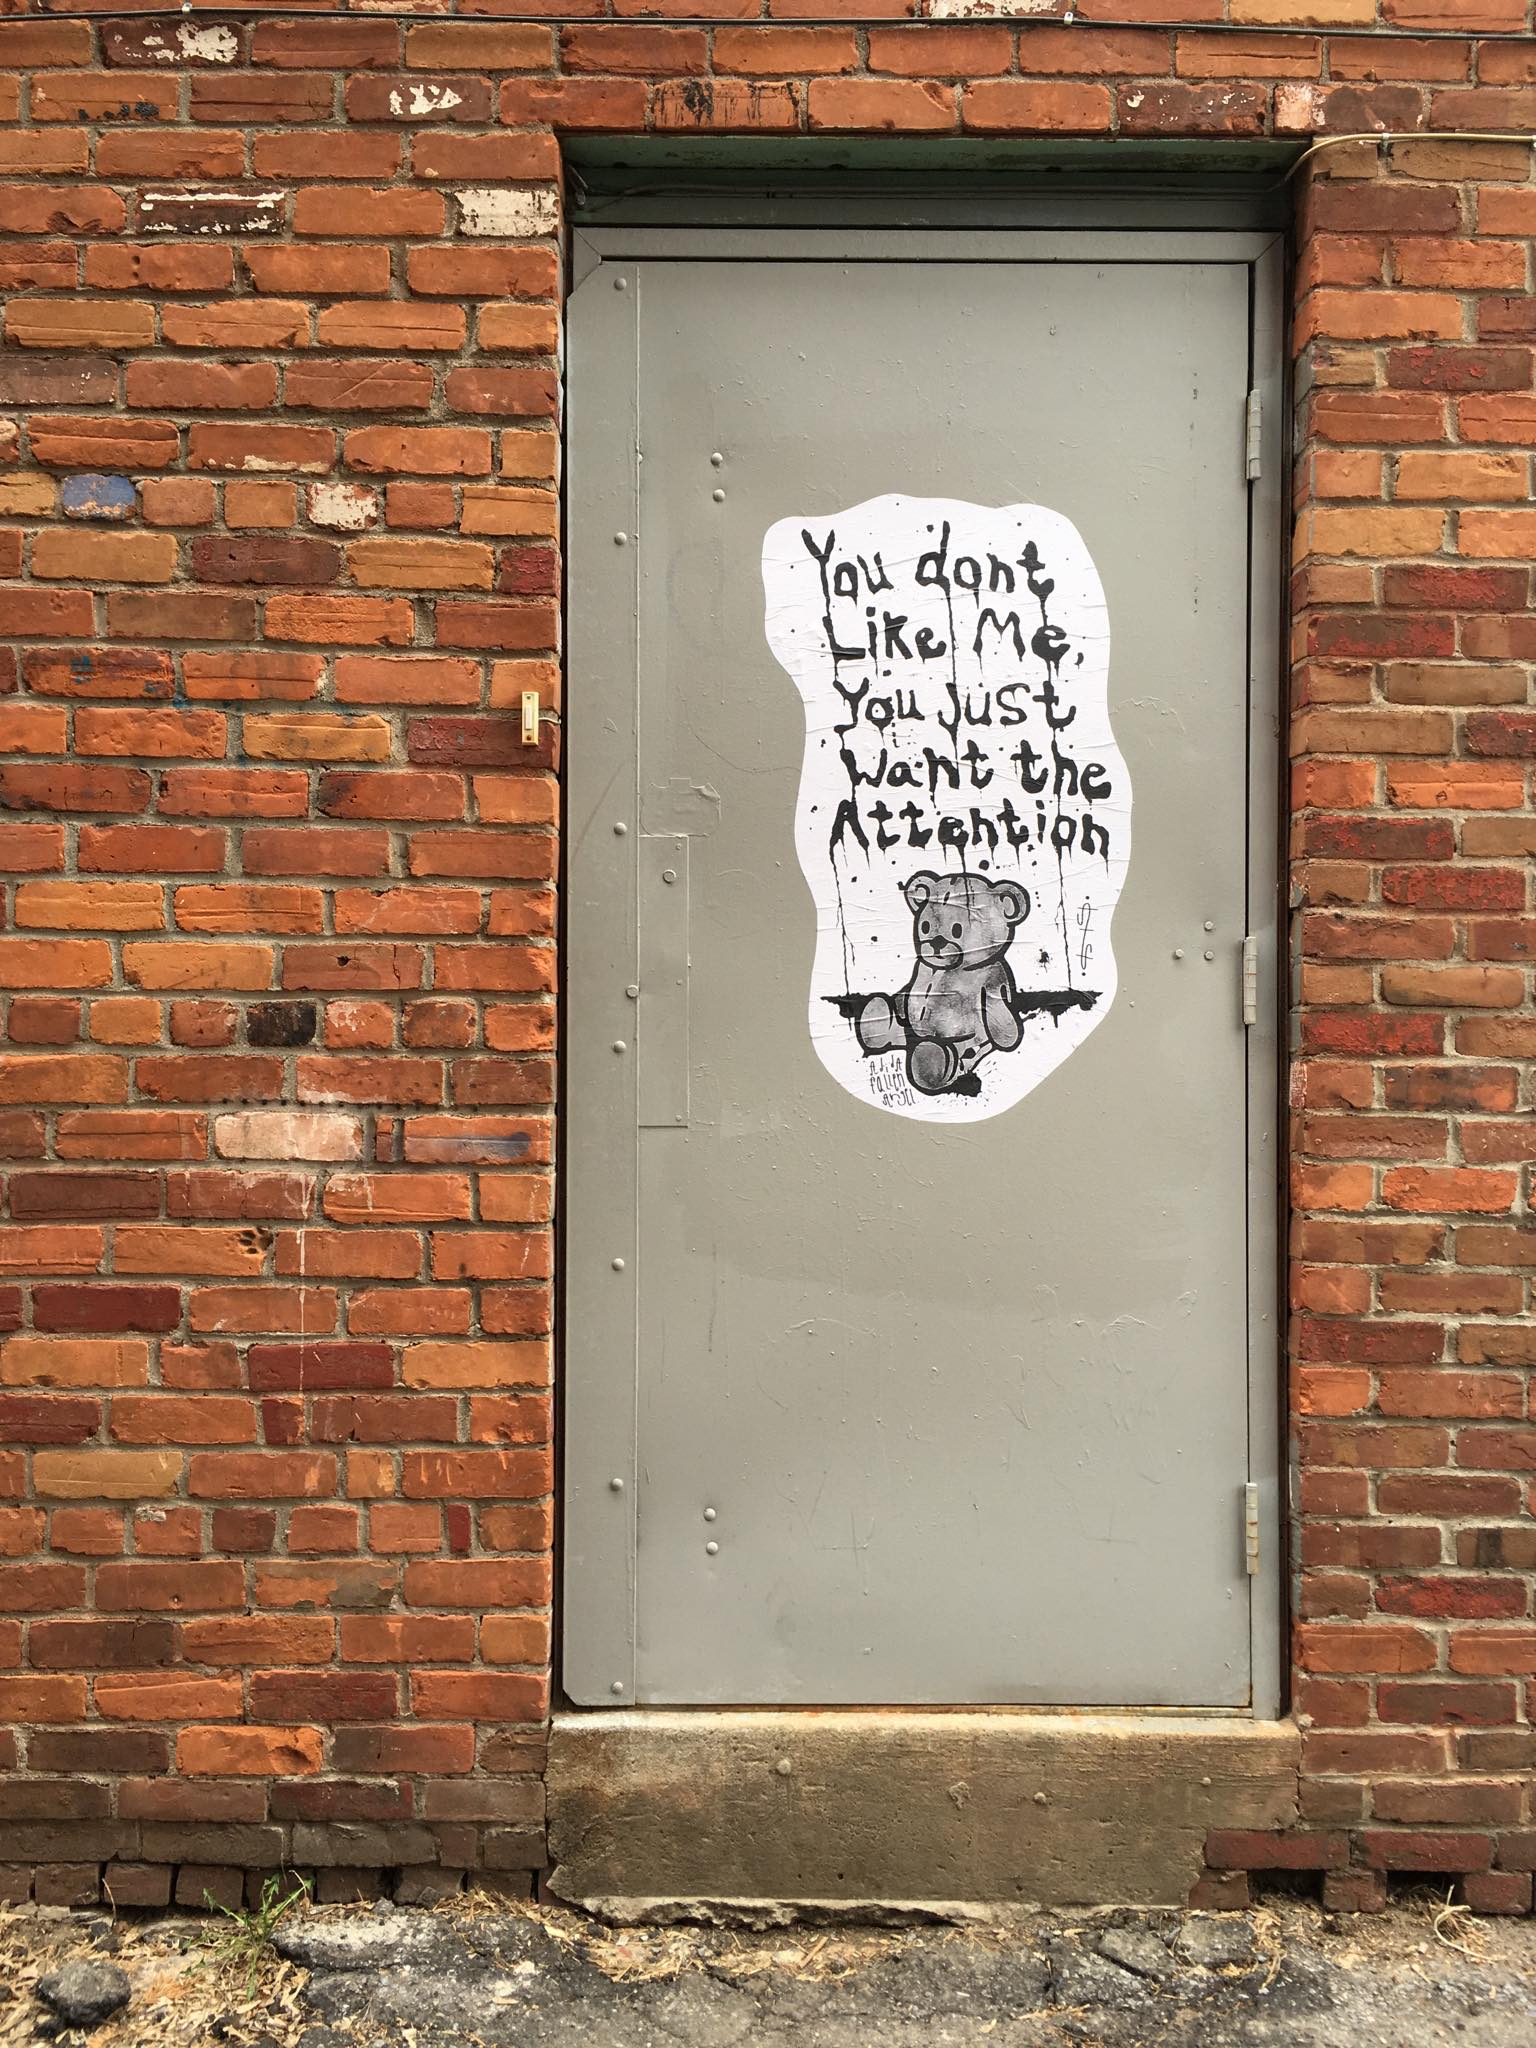 You dont
Like Me,
You just
Want the
Attention